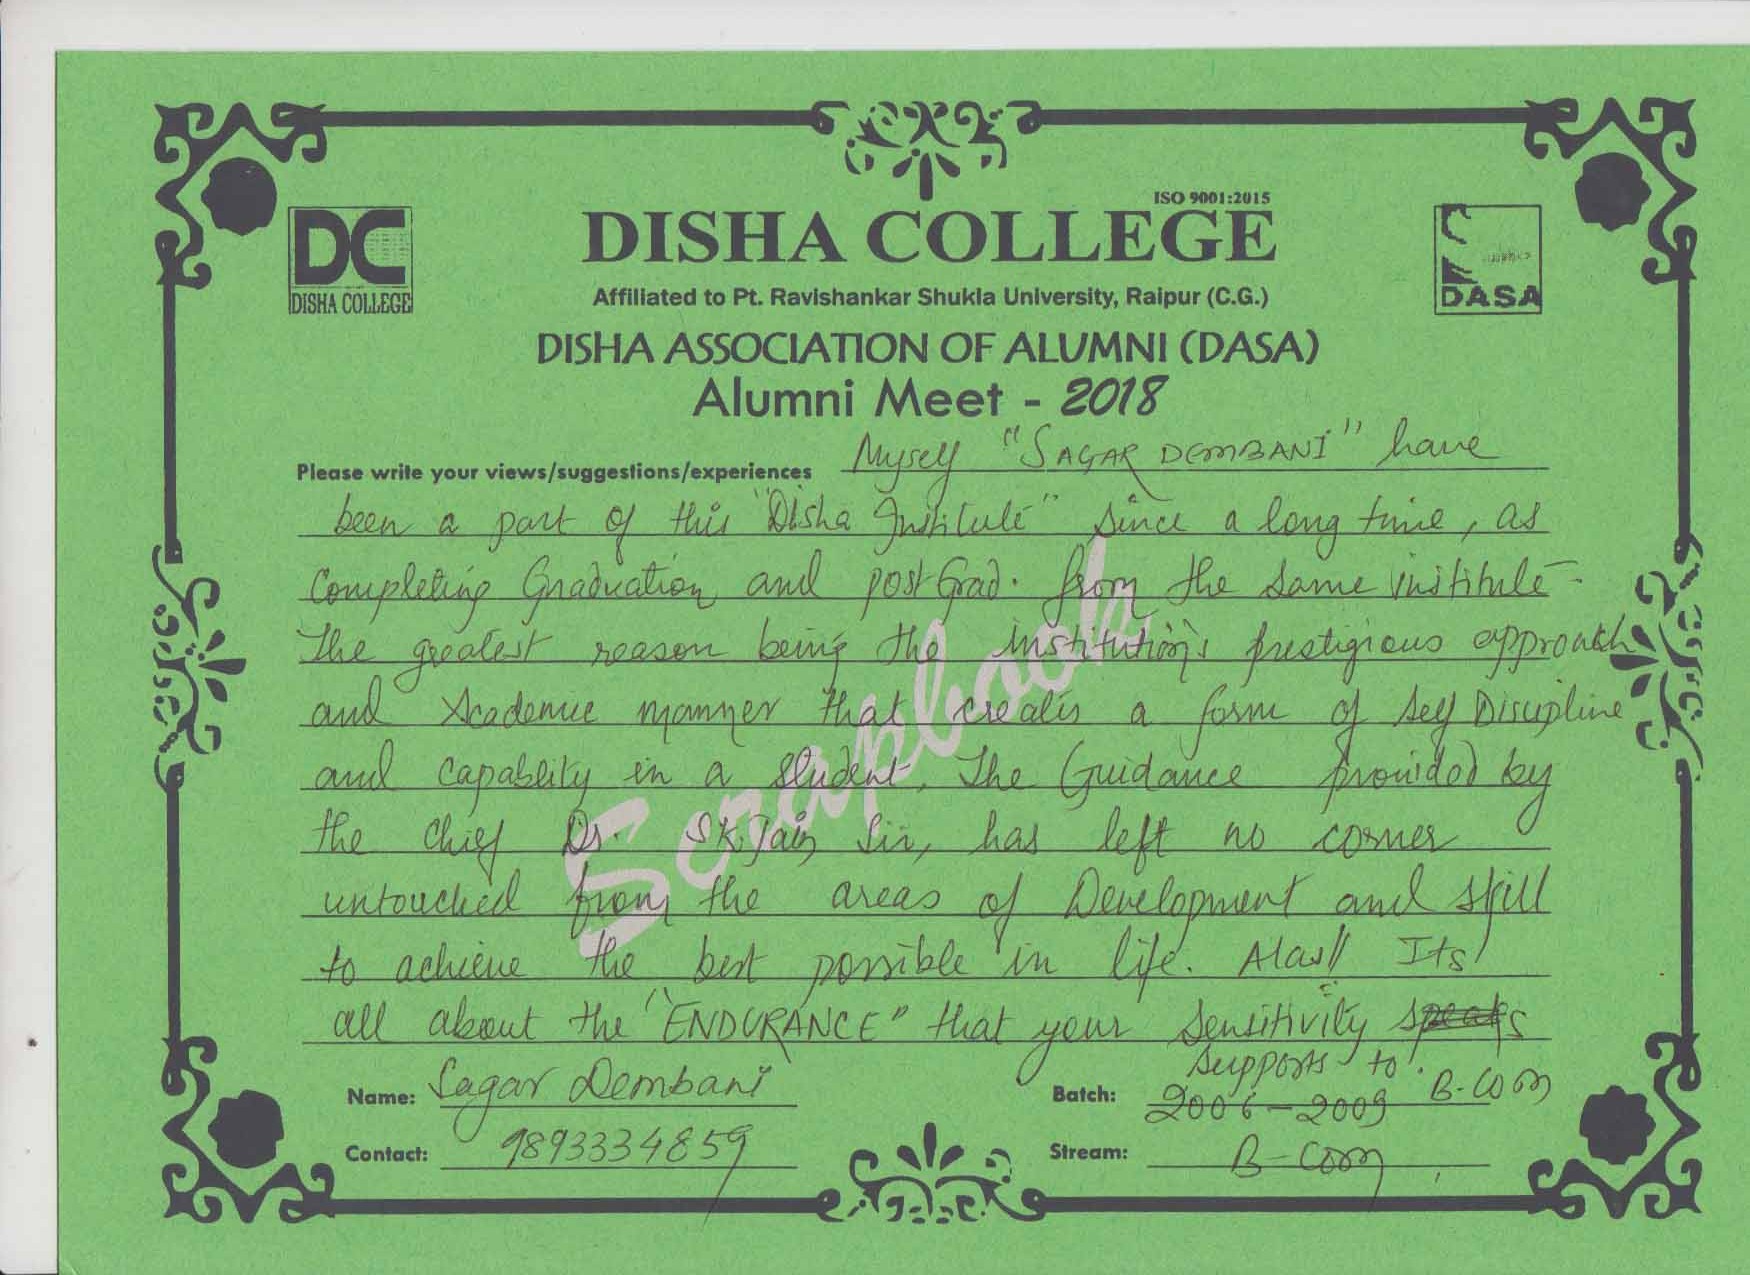 ISO 9001:2015
DC
DISHA COLLEGE
DISHA COLLEGE
DASA
Affiliated to Pt. Ravishankar Shukla University, Raipur (C.G.)
DISHA ASSOCIATION OF ALUMNI (DASA)
Alumni Meet - 2018
Please write your views/suggestions/experiences Myself "SAGAR DEMBANI" have
been a part of this "Disha Institute" since a long time, as
Completing Graduation and post Grad. from the same institute.
The greatest reason being the institution's prestigious approach
and Academic manner that creates a form of self Discipline
and capablity in a student. The Guidance provided by
the chief Dr. S.K. Jain Sir, has left no corner
untouched from the areas of Development and skill
to achieve the best possible in life. Alas!! Its
all about the "ENDURANCE" that your sensitivity speaks
supports to.
Scrapbook
Name: Sagar Dembani
Batch: 2006-2009 B-Com
Contact: 9893334859
Stream: B-Com